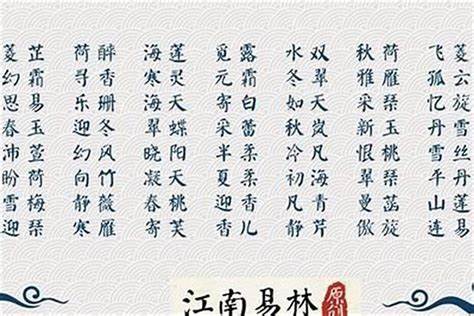 菱芷 荷醉 海莲 觅露 水双 秋荷 飞菱
幻霜 寻香 寒灵 元霜 冬翠 雅雁 孤云
思易 乐珊 海天 寄白 初蝶 采琹 忆旋
春玉 迎冬 翠蝶 采蕾 秋岚 新玉 丹雪
沛萱 幻风 晓阳 半柔 冷凡 恨桃 雪丝
盼荷 向竹 凝天 夏柔 初海 翠琹 平丹
雪梅 静薇 春桃 迎香 凡青 曼菡 山莲
迎琹 寒雁 海芙 香儿 静芙 傲旋 连易
江南易林
原创